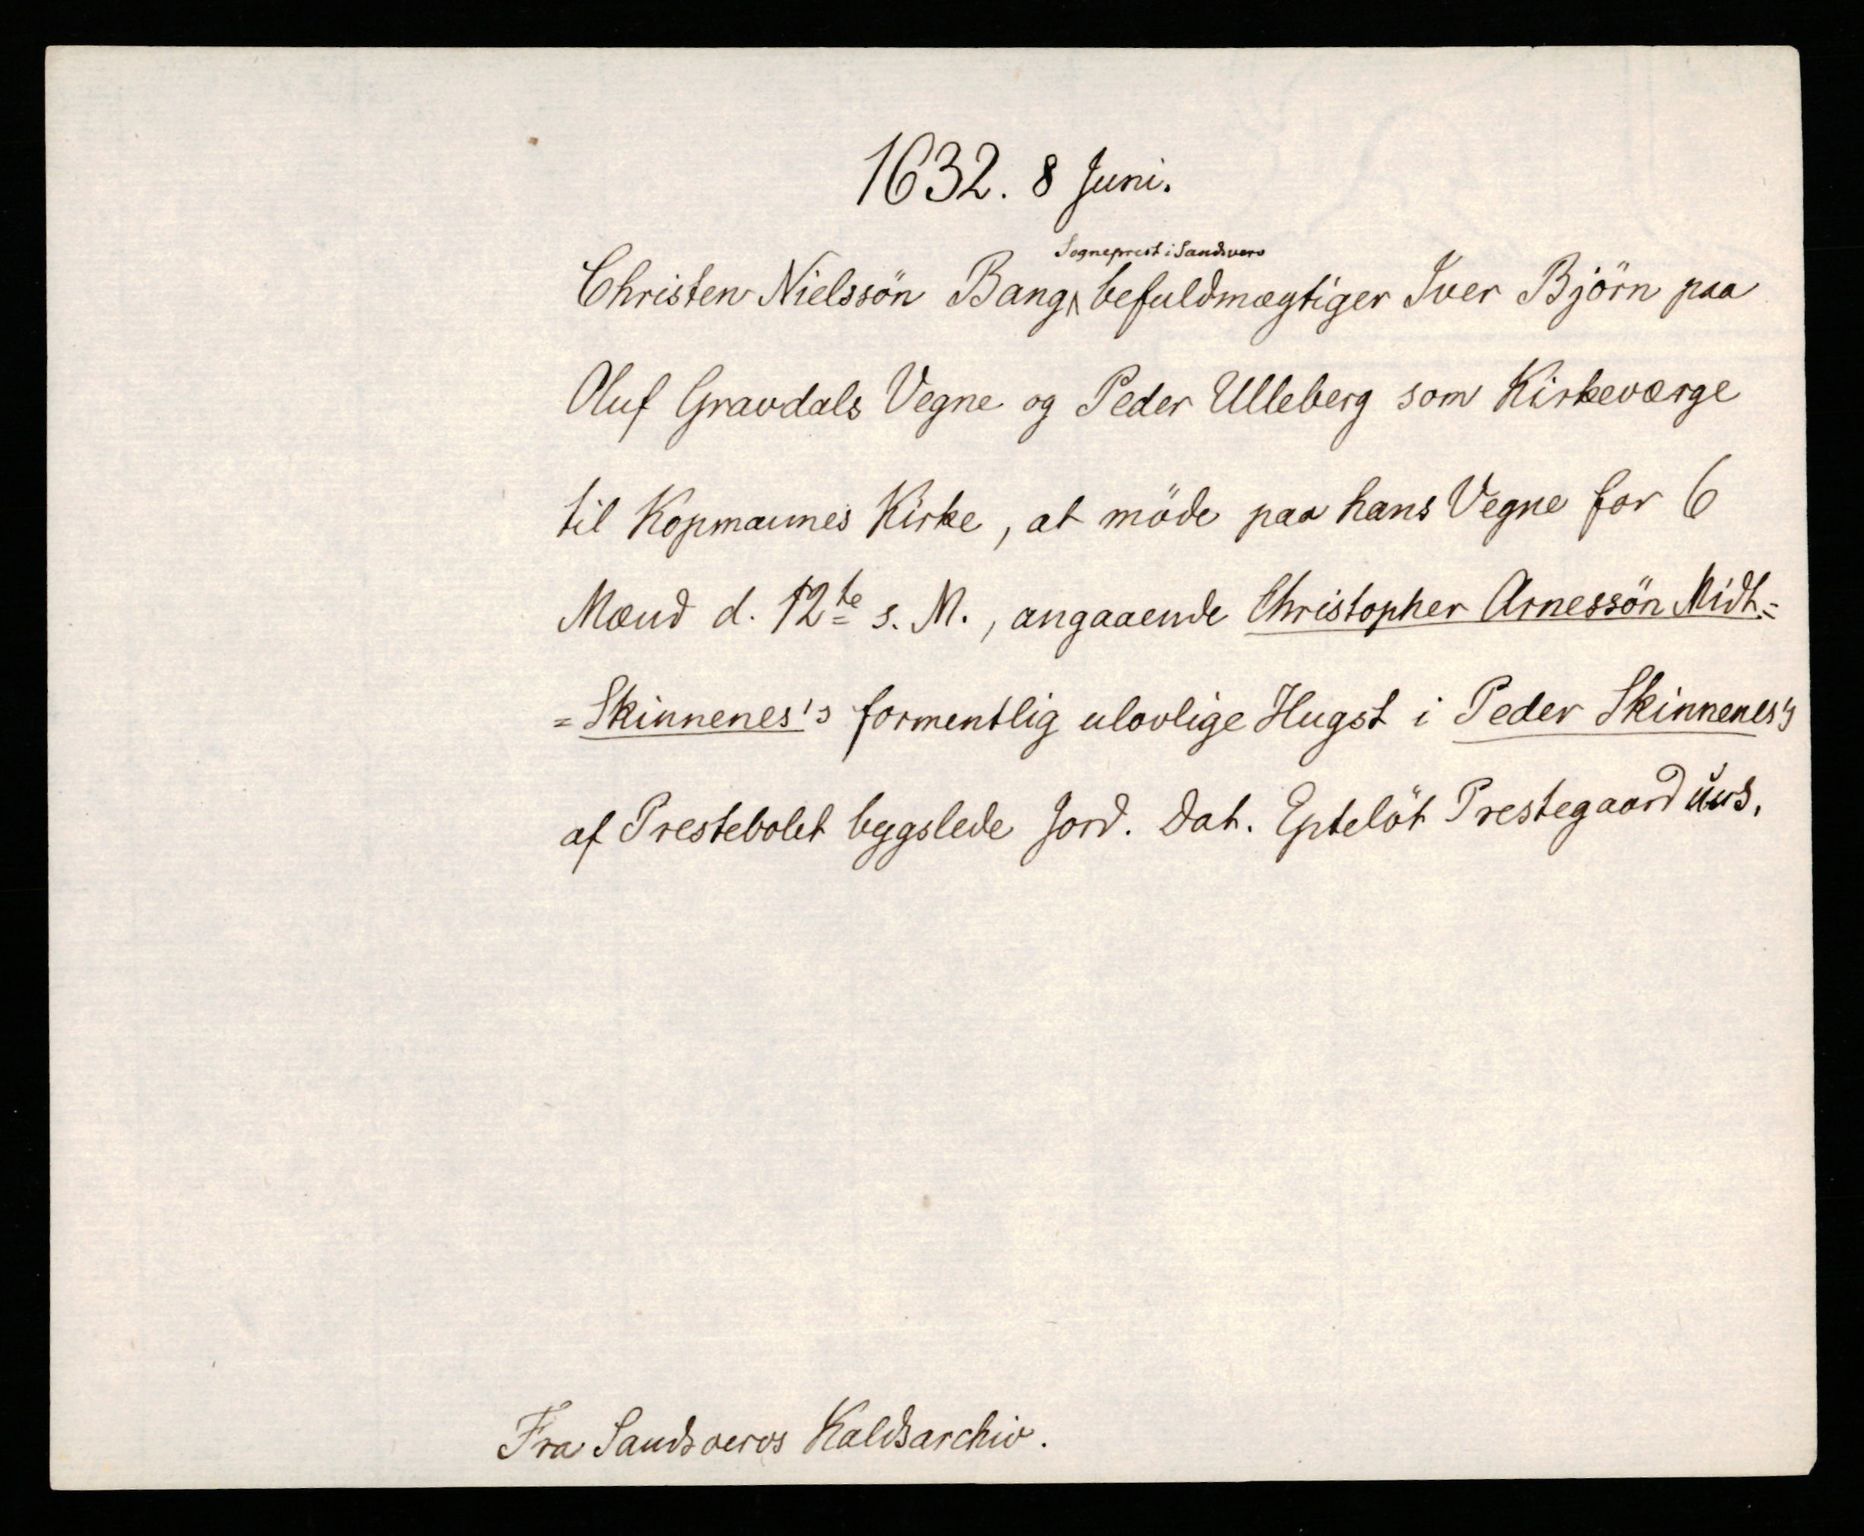 1632. 8 Juni.
Sogneprest i Sandsverv
Christen Nielssön Bang befuldmægtiger Iver Björn paa
Oluf Gravdals Vegne og Peder Ulleberg som Kirkeværge
til Kopmannes Kirke, at möde paa hans Vegne for 6
Mænd d. 12te s. M., angaaende Christopher Arnessön Midt-
=Skinnenes's formentlig ulovlige Hugst i Peder Skinnenes's
af Prestebolet bygslede Jord. Dat. Epteløt Prestegaard
Fra Sandsvervs Kaldsarchiv.